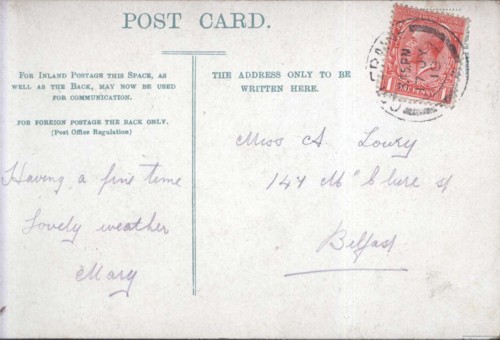 POST CARD.
FOR INLAND POSTAGE THIS SPACE, AS
WELL AS THE BACK, MAY NOW BE USED
FOR COMMUNICATION.
FOR FOREIGN POSTAGE THE BACK ONLY.
(Post Office Regulation)
THE ADDRESS ONLY TO BE
WRITTEN HERE.
Having a fine time
Lovely weather
Mary
Miss A. Lowry
147 McClure St
Belfast